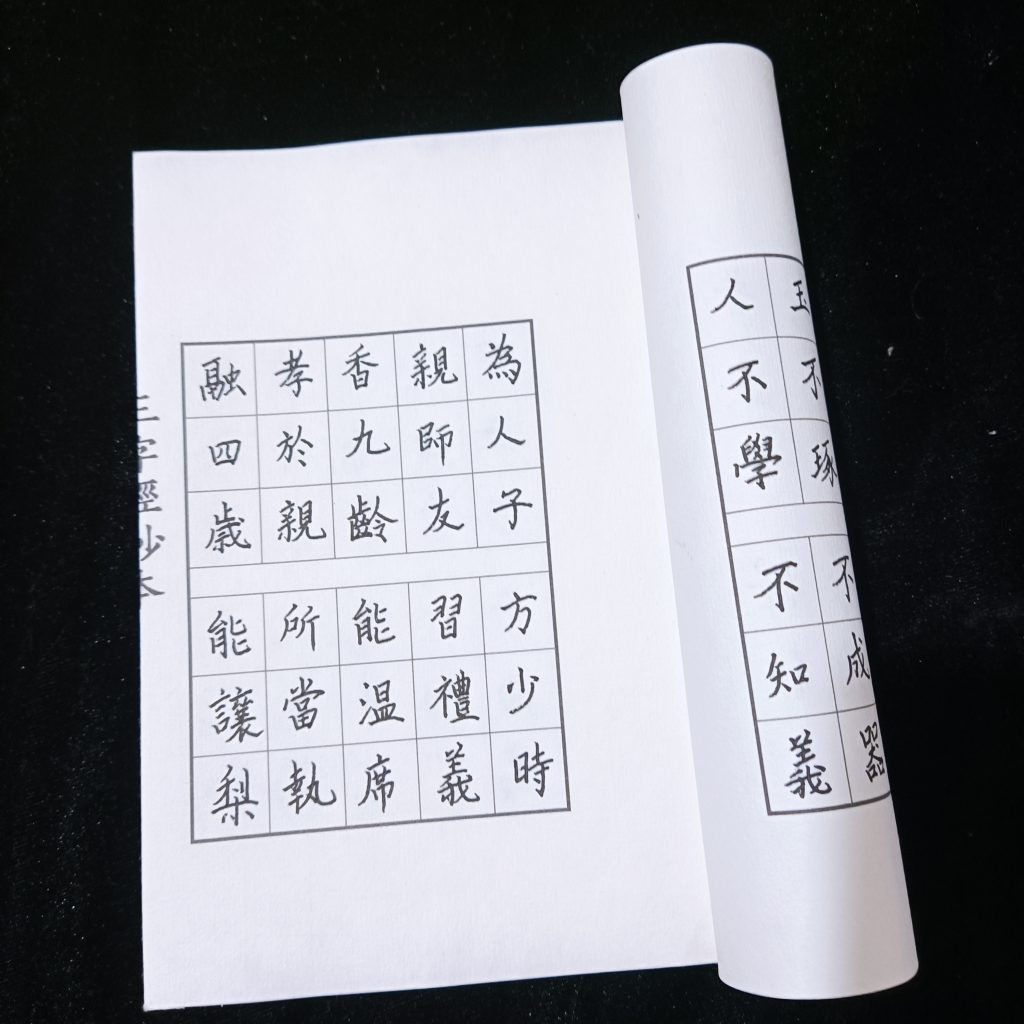 玉不琢
不成器
人不學
不知義
為人子
方少時
親師友
習禮義
香九齡
能溫席
孝於親
所當執
融四歲
能讓梨
三字經抄本